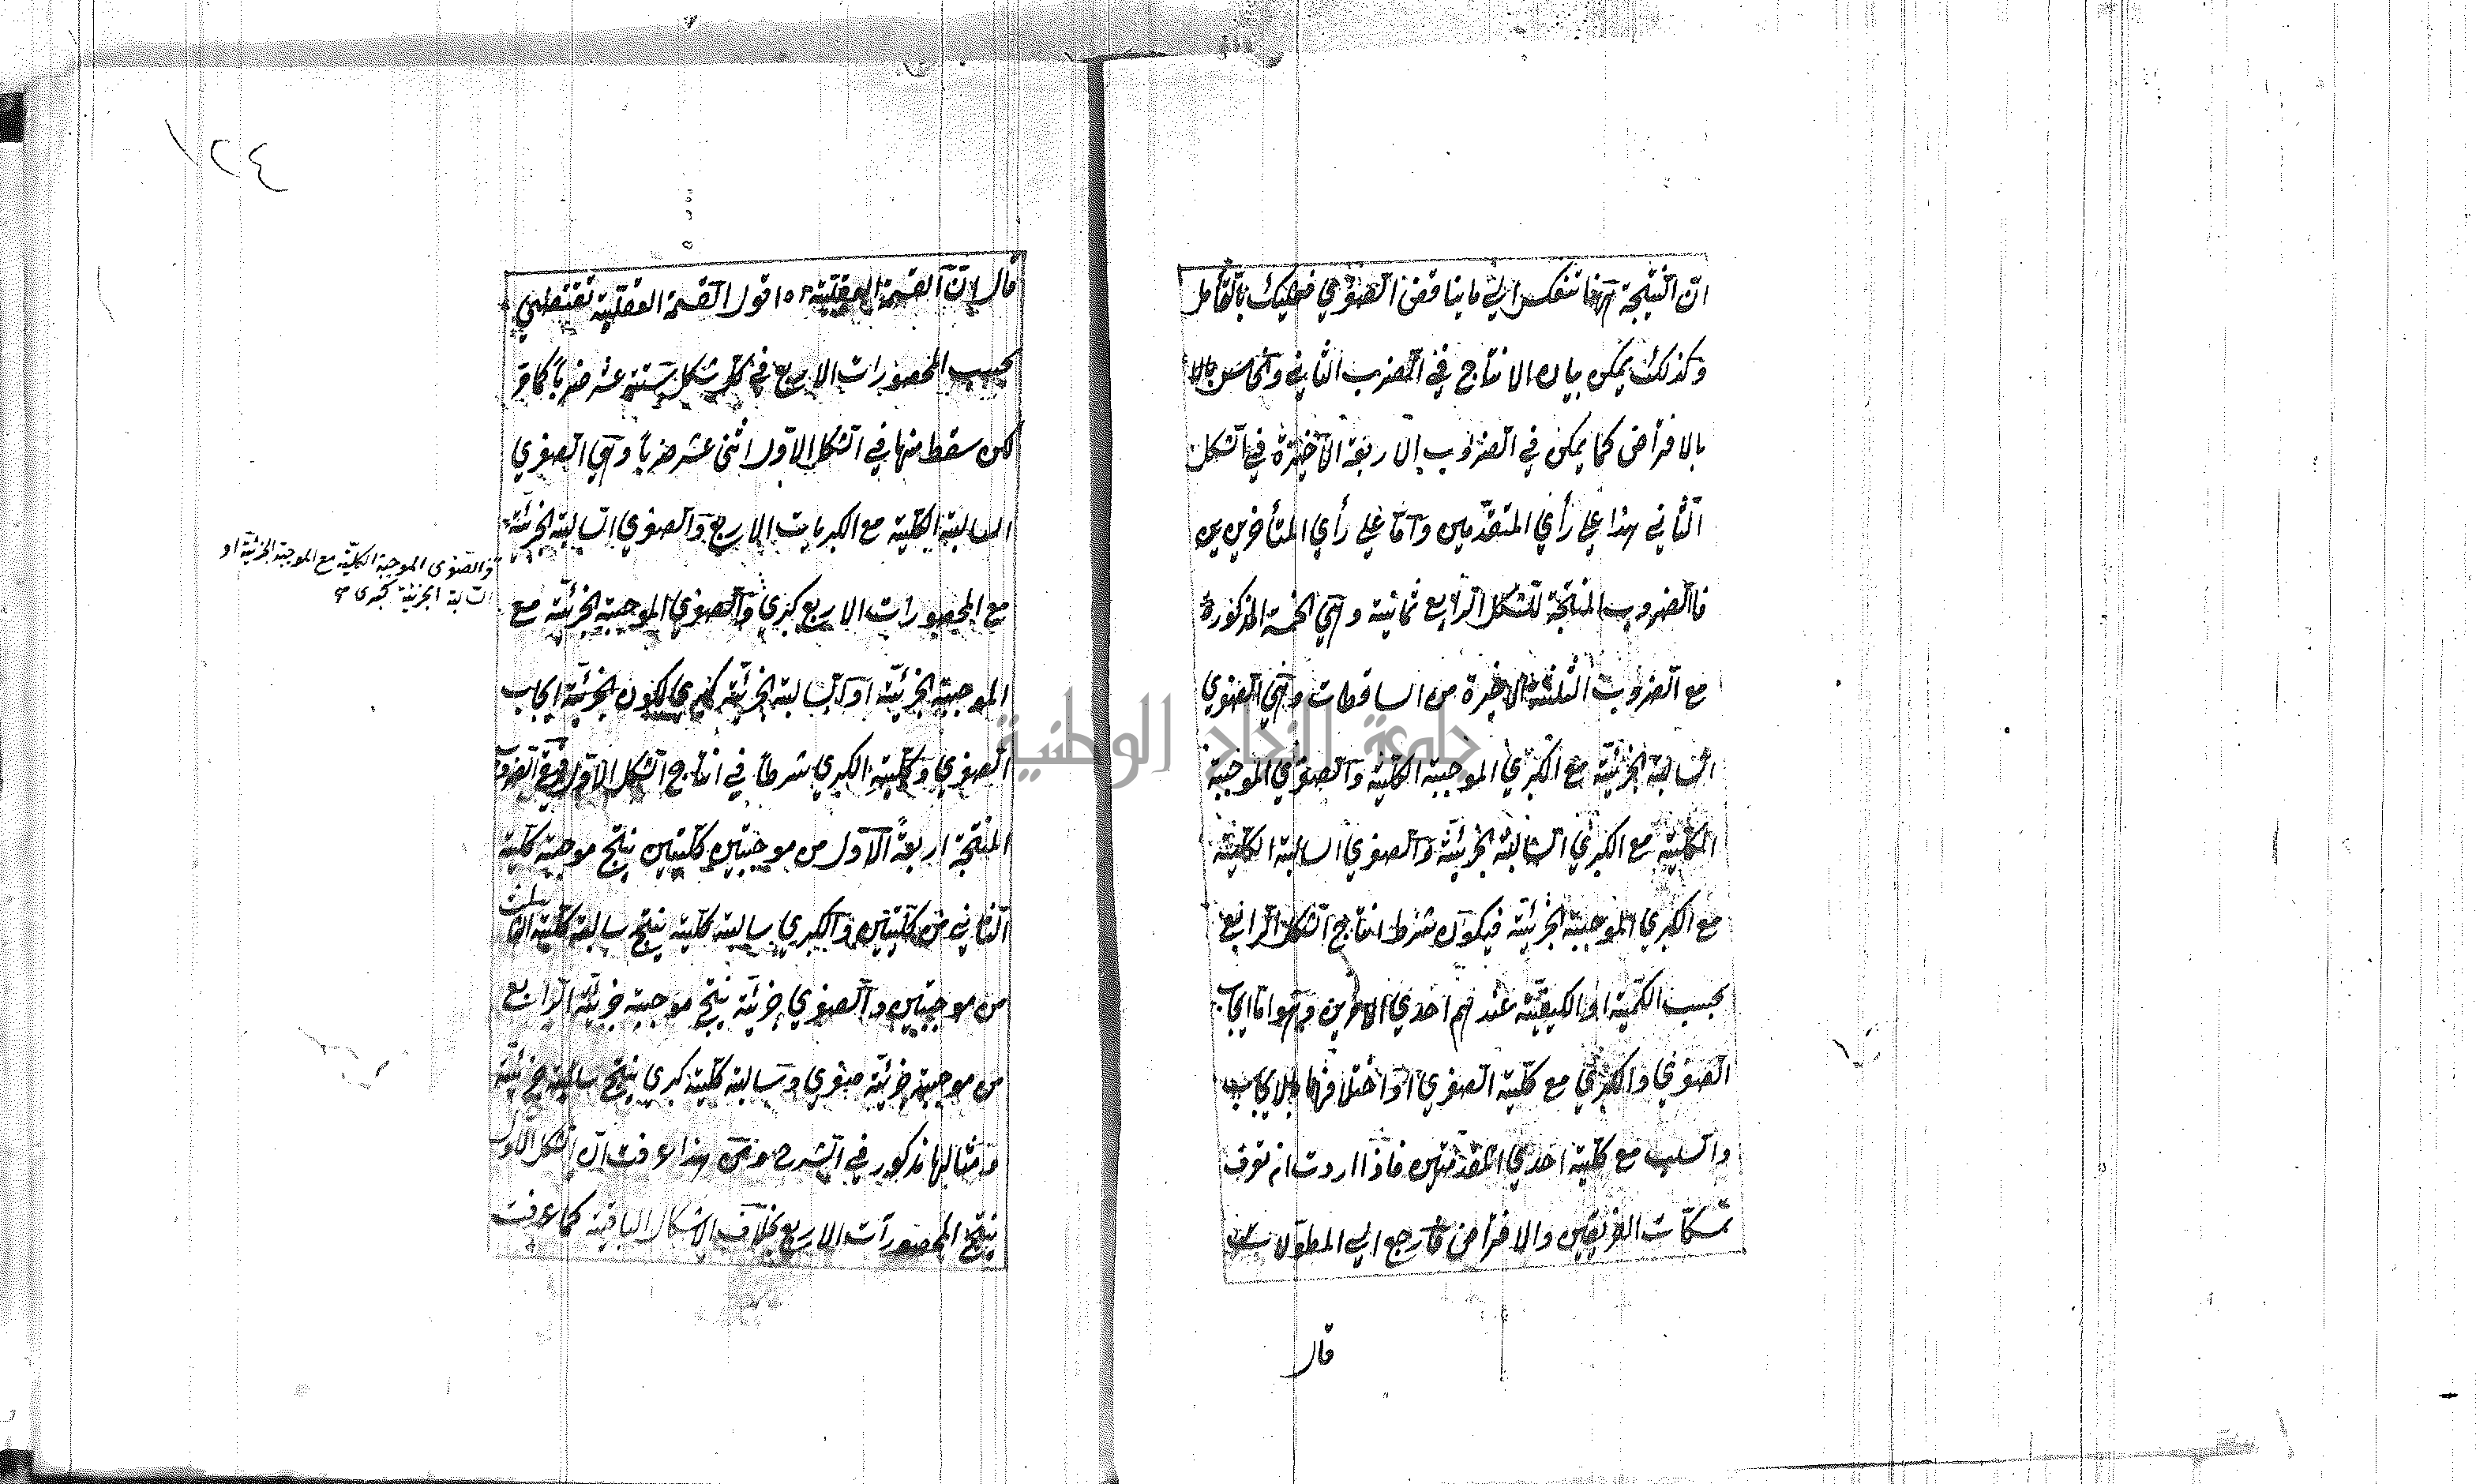 انّ النتيجة ههنا تنعكس الي ما يناقض الصغري فعليك بالتأمل
وكذلك يمكن بيان الانتاج في الضرب الثاني والخامس بالا
بالافتراض كما يمكن في الضروب الاربعة الاخيرة في الشكل
الثاني هذا علي رأي المتقدّمين وامّا علي رأي المتأخرين
فالضروب المنتجة للشكل الرابع ثمانية وهي الخمسة المذكورة
مع الضروب الثلثة الاخيرة من الساقطات وهي الصغري
السالبة الجزئيّة مع الكبري الموجبة الكليّة والصغري الموجبة
الكليّة مع الكبري السالبة الجزئيّة والصغري السالبة الكليّة
مع الكبري الموجبة الجزئيّة فيكون شرط انتاج الشكل الرابع
بحسب الكميّة او الكيفيّة عندهم احدي الامرين وهو امّا ايجاب
الصغري والكبري مع كليّة الصغري او اختلافهما بالايجاب
والسلب مع كليّة احدي المقدّمتين فاذا اردت ان تعرف
تمسّكات الفريقين والافتراض فارجع الي المطوّلات
قال
١٢٤
قال لانّ القسمة العقليّة اه اقول القسمة العقليّة تقتضي
بحسب المحصورات الاربع في كلّ شكل ستّة عشر ضرباً كما مرّ
لكن سقط منها في الشكل الاوّل اثني عشر ضرباً وهي الصغري
السالبة الكليّة مع الكبريات الاربع والصغري السالبة الجزئيّة
مع المحصورات الاربع كبري والصغري الموجبة الجزئيّة مع
الموجبة الجزئيّة او السالبة الجزئيّة كبري لكون ايجاب
الصغري وكليّة الكبري شرطاً في انتاج الشكل الاوّل فبقي الضروب
المنتجة اربعةً الاول من موجبتين كليتين ينتج موجبة كليّة
الثاني من كليتين والكبري سالبة كليّة ينتج سالبة كليّة الثالث
من موجبتين والصغري جزئيّة ينتج موجبة جزئيّة الرابع
من موجبة جزئيّة صغري وسالبة كليّة كبري ينتج سالبة جزئيّة
ومثالها مذكور في الشرح ومن هذا عرفت انّ الشكل الاول
ينتج المحصورات الاربع بخلاف الاشكال الباقية كما عرفت
والصغرى الموجبة الكليّة مع الموجبة الجزئيّة او
السالبة الجزئيّة كبرى
جامعة النجاح الوطنية